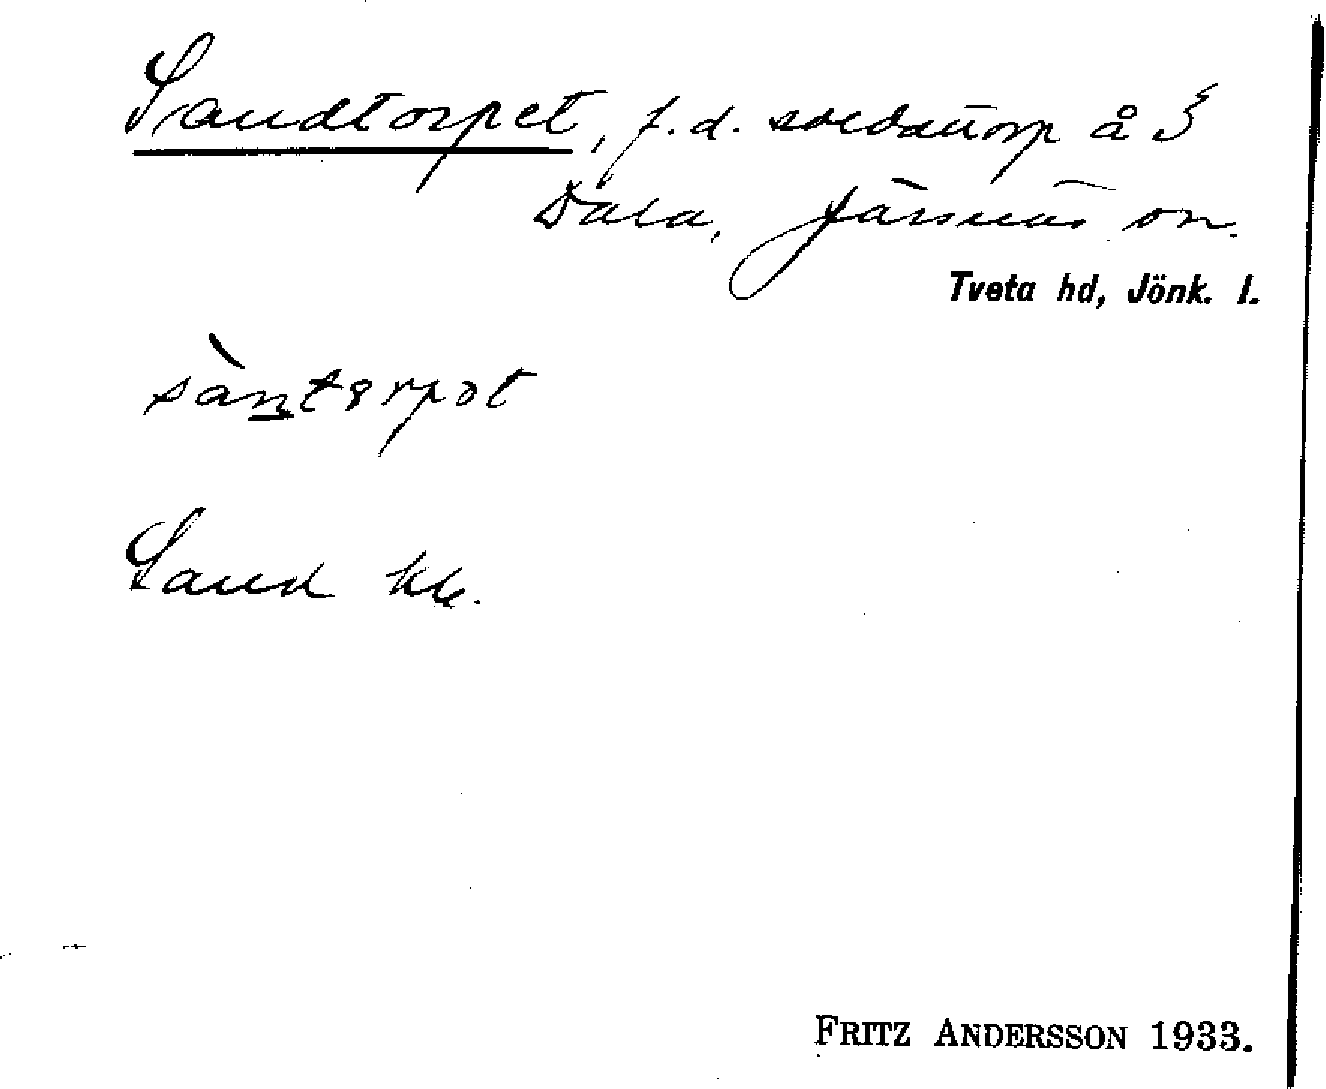 Sandtorpet, f.d. soldattorp å
Dala, Järsnäs sn.
Tveta hd, Jönk. l.
sàntorpət
Sand
FRITZ ANDERSSON 1933.